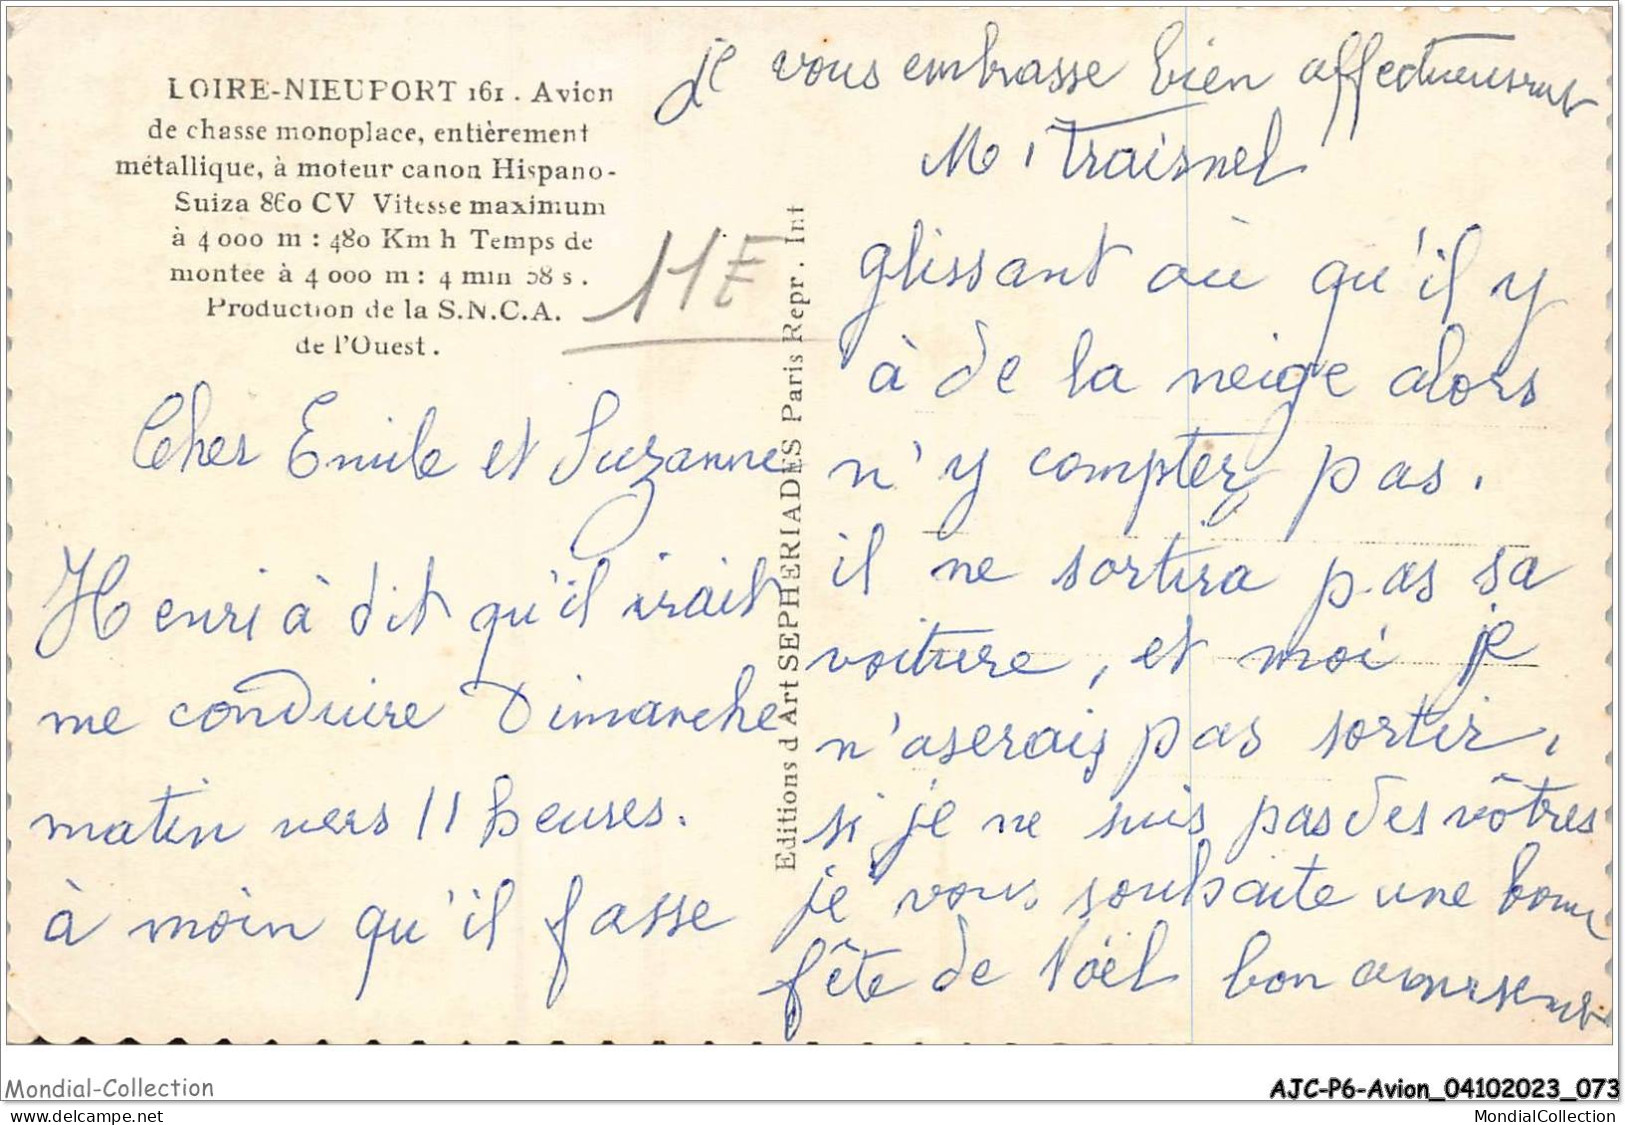 LOIRE-NIEUPORT 161. Avion
de chasse monoplace, entièrement
métallique, à moteur canon Hispano-
Suiza 860 CV Vitesse maximum
à 4 000 m : 480 Km h Temps de
montée à 4 000 m : 4 min 58 s.
Production de la S.N.C.A.
de l'Ouest.
11E
Cher Emile et Suzanne
Henri à dit qu'il irait
me conduire Dimanche
matin vers 11 heures.
à moin qu'il fasse
Editions d Art SEPHERIADES Paris Repr. Int
glissant où qu'il y
à de la neige alors
n'y compter pas.
il ne sortira pas sa
voiture, et moi je
n'aserais pas sortir,
si je ne suis pas des vôtres
je vous souhaite une bonne
fête de Noël bon
je vous embrasse bien affectueusement
M. Traisnel
Mondial-Collection
www.delcampe.net
AJC-P6-Avion_04102023_073
MondialCollection